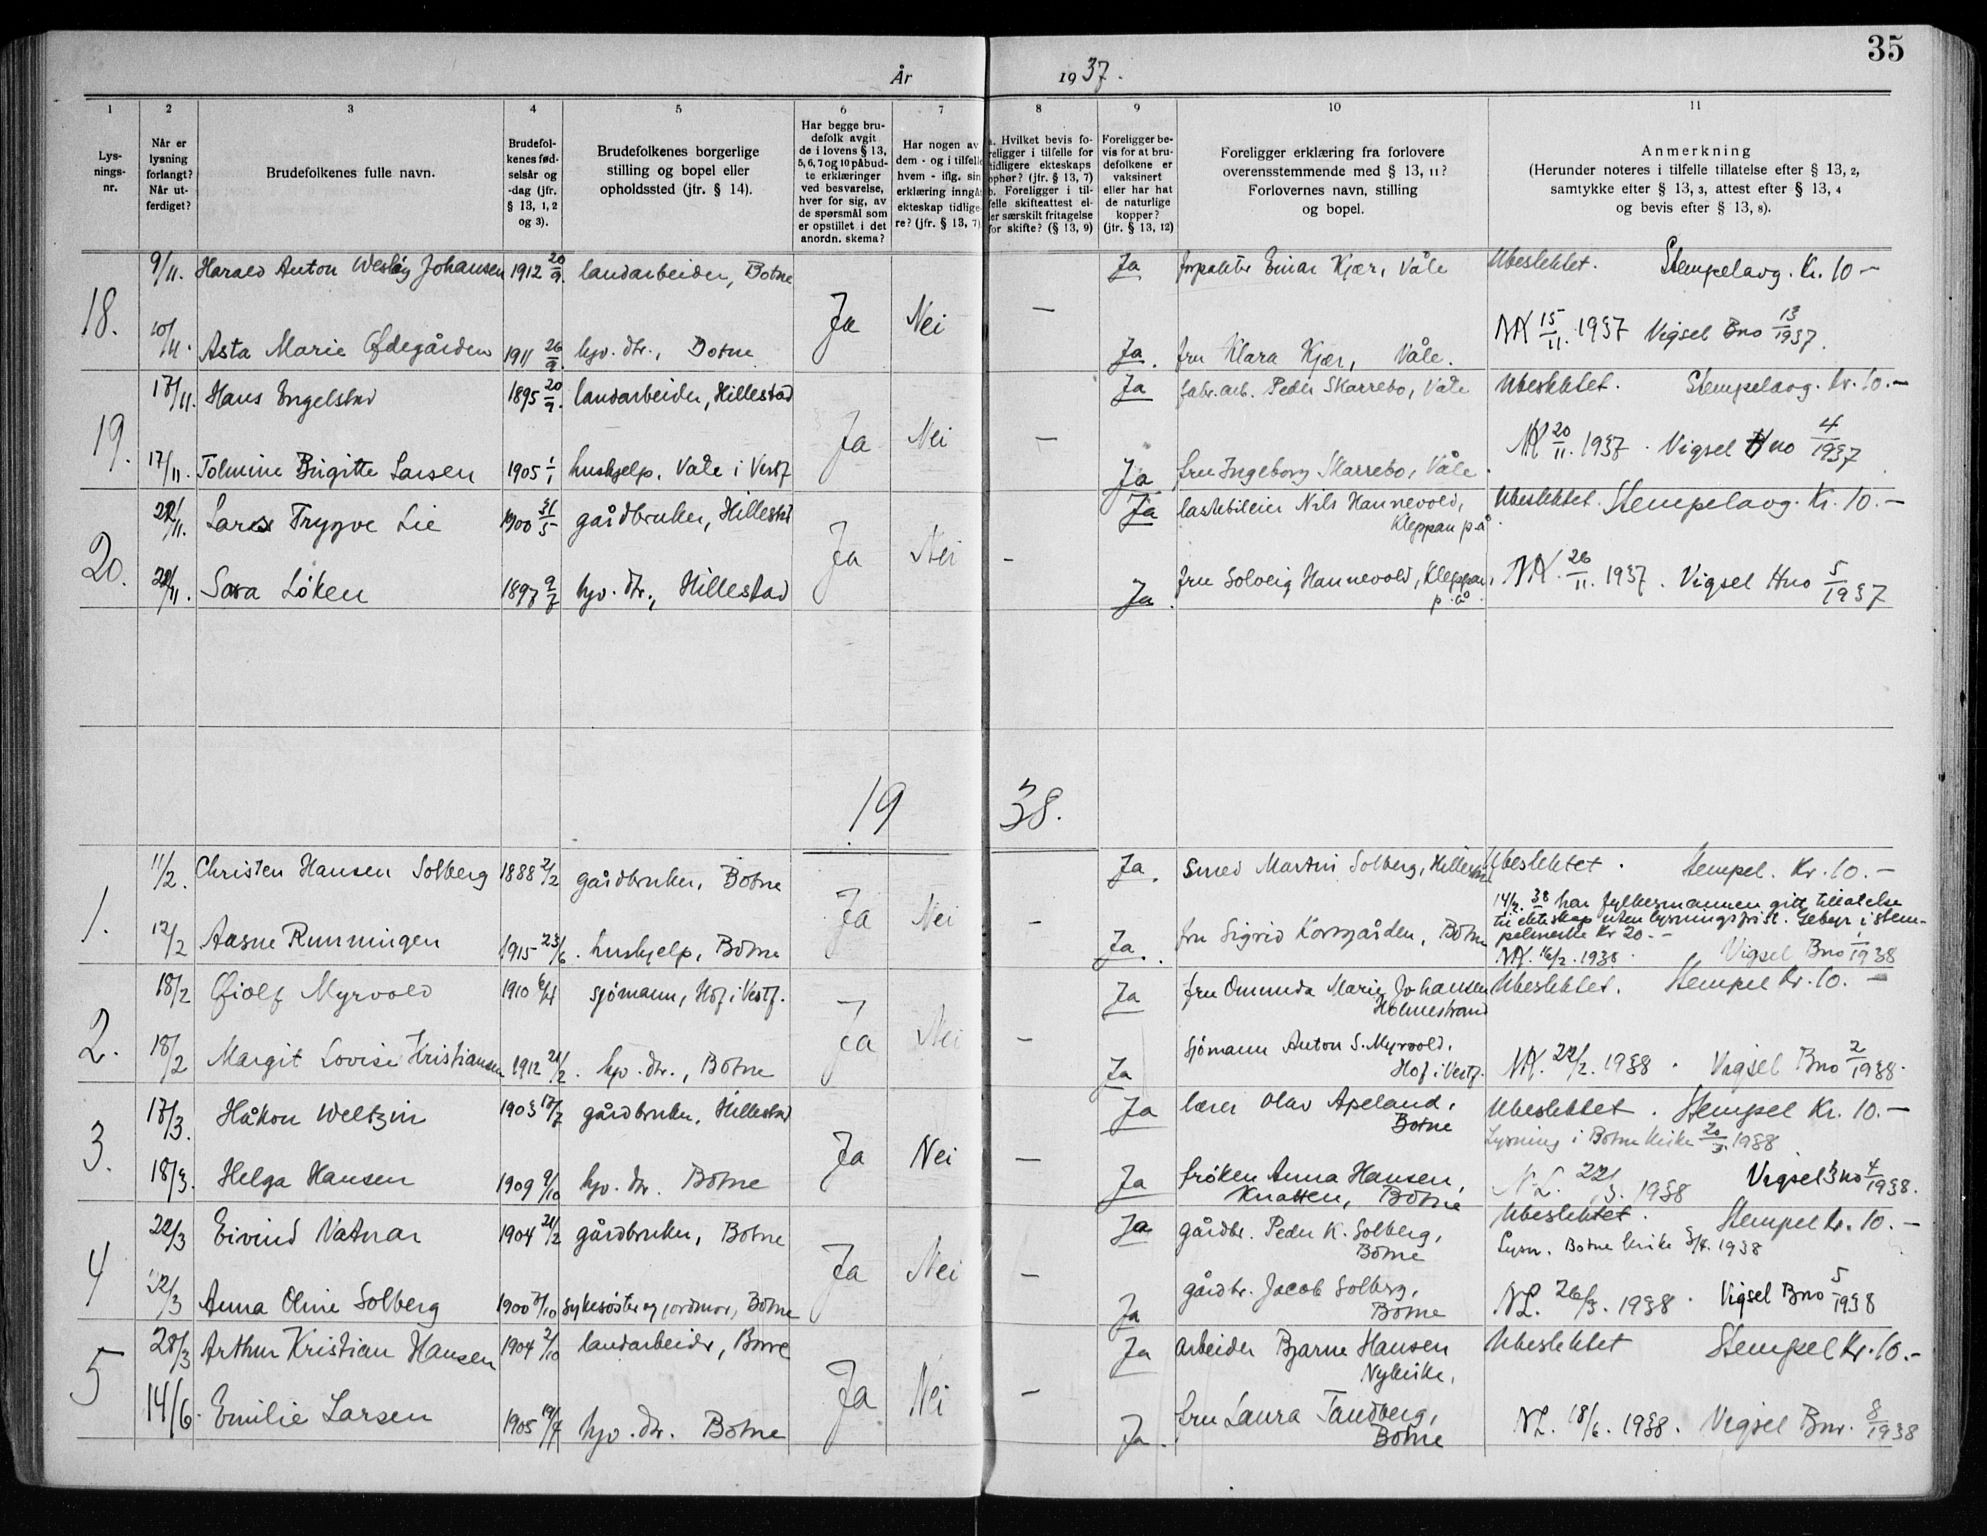 35
År 1937.
1 2 3 4 5 6 7 8 9 10 11
Lys-
nings-
nr.
Når er
lysning
forlangt?
Når ut-
ferdiget?
Brudefolkenes fulle navn.
Brudefol-
kenes fød-
selsår og
-dag (jfr.
§ 13, 1, 2
og 3).
Brudefolkenes borgerlige
stilling og bopel eller
opholdssted (jfr. § 14).
Har begge bru-
defolk avgit
de i lovens § 13,
5, 6, 7 og 10 påbud-
te erklæringer
ved besvarelse,
hver for sig, av
de spørsmål som
er opstillet i det
anordn. skema?
Har nogen av
dem - og i tilfelle
hvem - iflg. sin
erklæring inngå
ekteskap tidlige
re? (jfr. § 13, 7)
a. Hvilket bevis fo-
religger i tilfelle for
tidligere ekteskaps
ophør? (jfr. § 13, 7)
b. Foreligger i til-
felle skifteattest el-
ler særskilt fritagelse
for skifte? (§ 13, 9)
Foreligger be-
vis for at bru-
defolkene er
vaksinert
eller har hat
de naturlige
kopper?
(jfr. § 13, 12)
Foreligger erklæring fra forlovere
overensstemmende med § 13, 11?
Forlovernes navn, stilling
og bopel.
Anmerkning
(Herunder noteres i tilfelle tillatelse efter § 13, 2,
samtykke efter § 13, 3, attest efter § 13, 4
og bevis efter § 13, 8).
18. 9/11. Harald Anton Wesley Johansen 1912 20/9. landarbeider, Botne Ja Nei — Ja forpakter Einar Kjær, Våle Ubeslektet. Stempelavg. Kr. 10 —
10/11. Asta Marie Ødegården 1911 26/9. hjv. dtr., Botne Ja. fru Klara Kjær, Våle. NK 15/11. 1937 Vigsel Bno 13/1937.
19. 17/11. Hans Engelstad 1895 20/9. landarbeider, Hillestad Ja Nei — Ja fabr. arb. Peder Skarrebo, Våle Ubeslektet. Stempelavg. Kr. 10.—
17/11. Tolmine Birgitte Larsen 1905 1/1 hushjelp, Våle i Vestf Ja fru Ingeborg Skarrebo, Våle. NK 20/11. 1937. Vigsel Hno 4/1937
20. 22/11. Lars Trygve Lie 1900 31/5 gårdbruker, Hillestad Ja Nei — Ja lastebileier Nils Hannevold,
Kleppan p.å. Ubeslektet. Stempelavg. Kr. 10.—
22/11. Sara Løken 1897 9/7 hjv. dtr., Hillestad Ja. fru Solveig Hannevold, Kleppan,
p.å. NK. 26/11. 1937. Vigsel Hno 5/1937
19 38.
1. 11/2. Christen Hansen Solberg 1888 2/2 gårdbruker, Botne Ja Nei — Ja. Smed Martin Solberg, Hillestad Ubeslektet. Stempel. Kr. 10.—
14/2. 38 har fylkesmannen gitt tillatelse
til ekteskap uten lysningsfrist. Gebyr i stem-
pelmerke Kr 20.—
12/2 Aasne Runningen 1915 23/6. hushjelp, Botne Ja. fru Sigrid Korsgården, Botne NK. 16/2. 1938. Vigsel Bno 1/1938
2. 18/2 Øiolf Myrvold 1910 6/4 sjømann, Hof i Vestf. Ja Nei — Ja fru Omunda Marie Johansen
Holmestrand Ubeslektet. Stempel Kr. 10.—
18/2 Margit Lovise Kristiansen 1912 21/2. hjv. dtr., Botne Ja sjømann Anton S. Myrvold,
Hof i Vestf. NK. 22/2. 1938. Vigsel Bno 2/1938.
3. 17/3. Håkon Weltzin 1903 17/7 gårdbruker, Hillestad Ja Nei — Ja lærer Olav Apeland,
Botne Ubeslektet. Stempel Kr. 10.—
Lysning i Botne kirke 20/3. 1938
18/3. Helga Hansen 1909 9/10 hjv. dtr. Botne Ja frøken Anna Hansen,
Knatten, Botne NL. 22/3. 1938 Vigsel Bno 4/1938.
4 22/3 Eivind Natvar 1904 21/2 gårdbruker, Botne Ja Nei — Ja gårdbr. Peder K. Solberg,
Botne Ubeslektet. Stempel Kr. 10.—
Lysn. Botne kirke 3/4. 1938
22/3 Anna Oline Solberg 1900 7/10 sykesøster og jordmor, Botne Ja gårdbr. Jacob Solberg,
Botne NL. 26/3. 1938. Vigsel Bno 5/1938
5 28/3 Arthur Kristian Hansen 1904 2/10 landarbeider, Borre Ja Nei — Ja Arbeider Bjarne Hansen
Nykirke, Ubeslektet Stempel Kr. 10.—
14/6. Emilie Larsen 1905 19/7 hjv. dtr. Botne Ja. fru Laura Tandberg,
Botne NL. 18/6. 1938. Vigsel Bnr. 8/1938